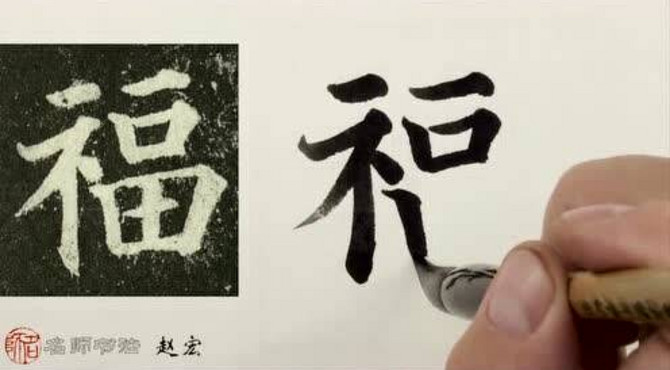 福
名师书法 赵宏